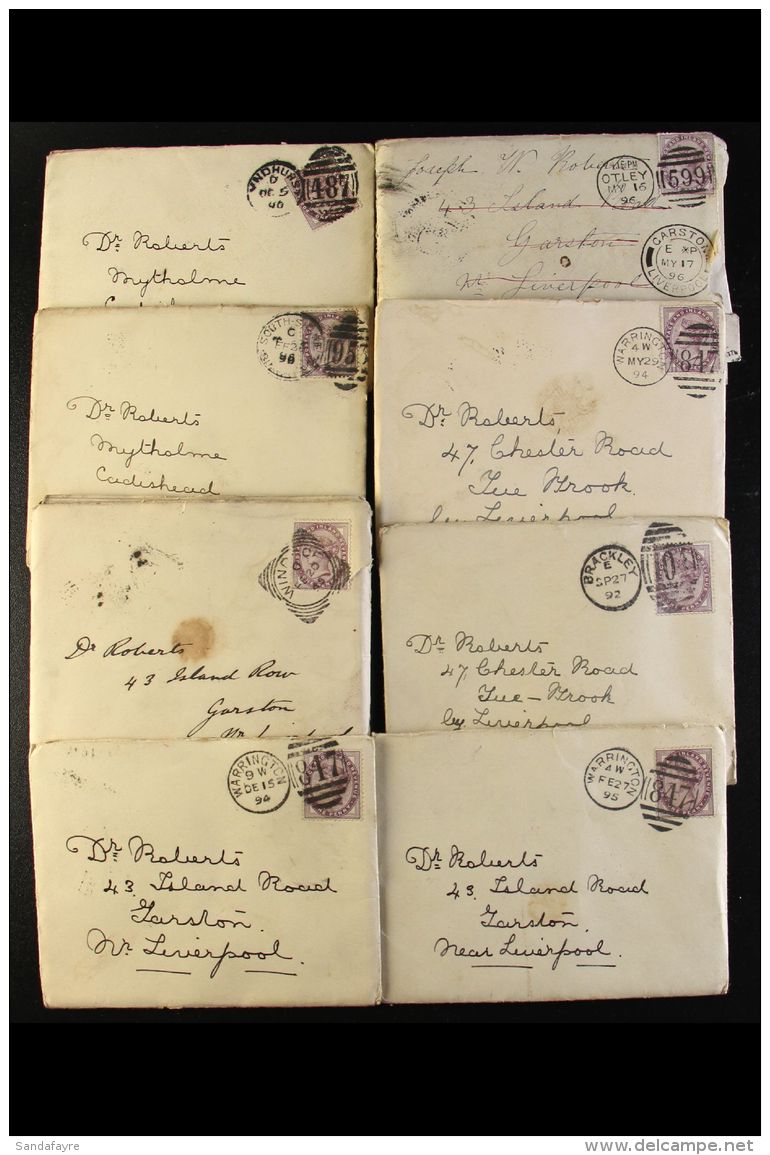 NDHURS
D
DE 5
96
487
Dr. Roberts
Mytholme
1.15 PM
OTLEY
MY 16
96
599
Joseph W. Roberts
43 Island Road
Garston
Nr. Liverpool
GARSTON
E P
MY 17
96
LIVERPOOL
SOUTH-S
C
FE 2
96
95
Dr. Roberts
Mytholme
Cadishead
WARRINGTON
4 W
MY 29
94
847
Dr. Roberts,
47, Chester Road
Tue Brook.
by Liverpool
Dr Roberts
43 Island Row
Garston
BRACKLEY
E
SP 27
92
Dr. Roberts
47, Chester Road
Tue - Brook
by Liverpool
WARRINGTON
9 W
DE 15
94
847
Dr. Roberts
43, Island Road
Garston.
Nr. Liverpool.
WARRINGTON
4 W
FE 27
95
847
Dr. Roberts
43, Island Road
Garston.
Near Liverpool.
Sandafayre
www.delcampe.net